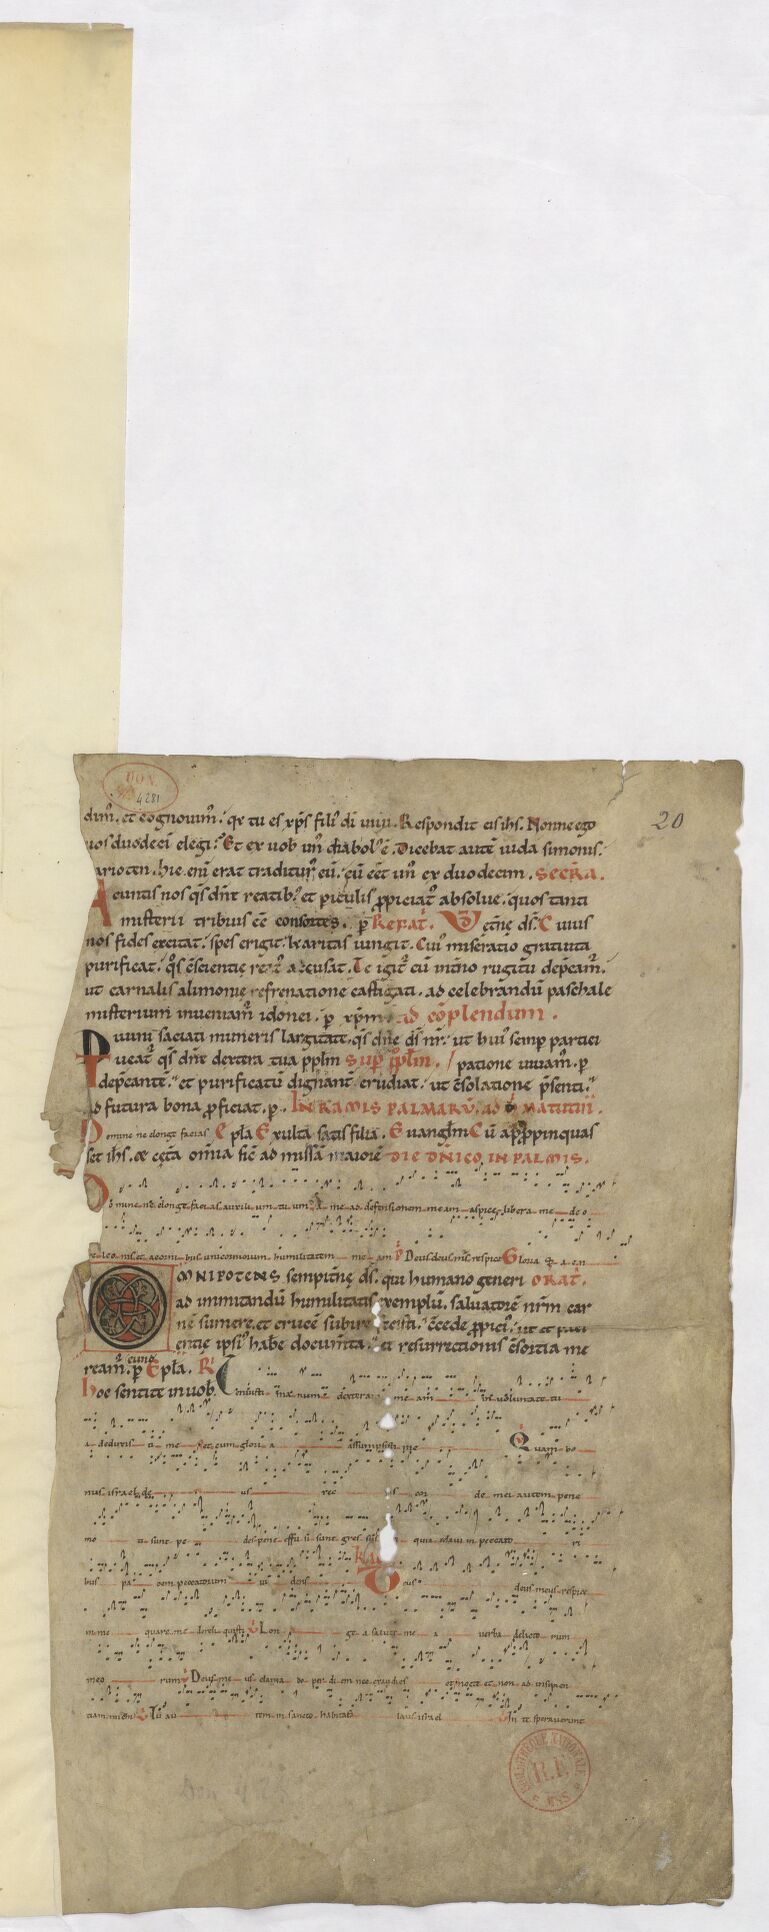 DON
4281
20
dim᷒. et cognouim᷒. qꝛ tu es xp̄s fili᷒ di uiui. Respondit eis ihs. Nonne ego
uos duodeci elegi. Et ex uob un᷒ diabol᷒ ē. Dicebat autē iuda simonis.
carioten. hic eni erat traditur᷒ eū. cū eēt un᷒ ex duodecim. SECRA.
A euntis nos qs dn̄e reatib᷒ et piculis ꝓpiciat᷒ absolue. quos tanti
misterii tribuis eē consortes. p̄ REFAT. V Etn̄e ds. Cuius
nos fides excitat. spes erigit. karitas iungit. Cui᷒ miseratio gratuita
purificat. accusat. Te igit᷒ cū int̄no rugitu dep̄cam᷒.
ut carnalis alimonie refrenatione castigati. ad celebrandū paschale
misterium inueniam᷒ idonei. p xpm. ad cōplendum.
Diuini saciati muneris largitate. qs dn̄e ds nr̄. ut hui᷒ semp partici
Tueat᷒ qs dn̄e dextera tua pplm SUP PPLM. / patione uiuam᷒. p
dep̄cantē. et purificatū dignant᷒ erudiat. ut c̄solatione p̄senti.
ad futura bona ꝓficiat. p. IN RAMIS PALMARŪ. AD MATUTII.
Domine ne longe facias Epła Exulta satis filia. Euanglm Cū apꝓpinquas
set ihs. & cet̄a om̄ia sic̄ ad missā maiorē DIE DN̄ICO IN PALMIS.
Do mine ne longe facias auxili um tu um a me ad defensionem meam aspice libera me de o
re leo nis et a corni bus unicornuorum humilitatem me am P̄ Deus ds ms respice Gloria
OMNIPOTENS sempitn̄e ds. qui humano generi ORAT.
ad imitandū humilitatis exemplū. saluatorē nr̄m car
nē sumere. et crucē subire fecisti. c̄cede ꝓpici᷒. ut et paci
entie ipsi᷒ habe docum̄ta. et resurrectionis c̄sortia me
ream᷒. p eundē Epła. R
hoc sentite in uob. Tenuisti manum dexteram me am in uoluntate tu
a deduxis ti me et cum gloria assumpsisti me Quam bo
nus israel de us rec tis cor de mei autem pene
mo ti sunt pe des pene effu si sunt gres sus quia zelaui in peccato ri
bus pa cem peccatorum ui dens TRAC Deus deus meus respice
in me quare me dereliquisti Lon ge a salute me a uerba delicto rum
meo rum Deus me us clama bo per di em nec exaudies et nocte et non ad insipien
tiam michi Tu au tem in sancto habitas laus israel In te sperauerunt
BIBLIOTHÈQUE NATIONALE
R.F.
MSS